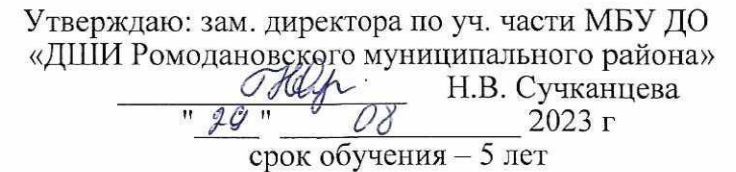 Утверждаю: зам. директора по уч. части МБУ ДО
«ДШИ Ромодановского муниципального района»
Н.В. Сучканцева
"29" 08 2023 г
срок обучения – 5 лет